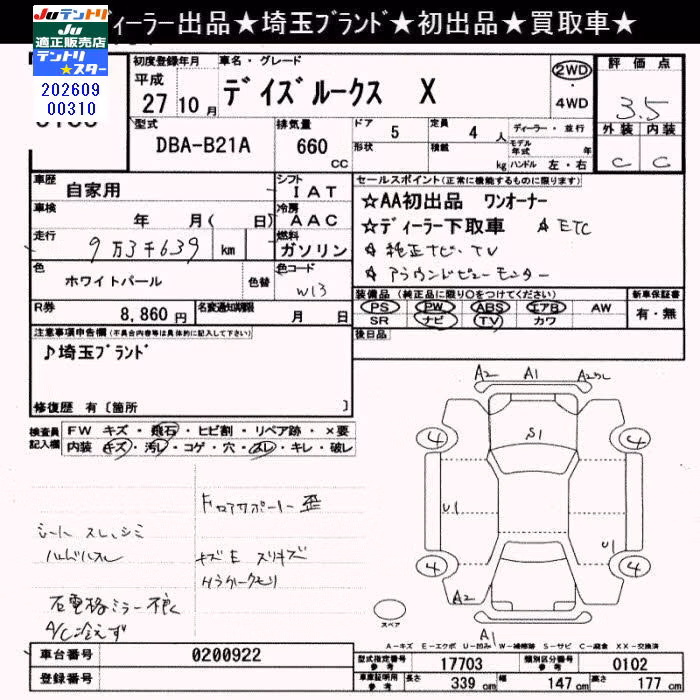 Juテントリ
Ju
適正販売店
テントリ
★スター
202609
00310
ディーラー出品★埼玉ﾌﾞﾗﾝﾄﾞ★初出品★買取車★
初度登録年月
平成
27 10 月
車名・グレード
デイズルークス X
2WD
・
4WD
評価点
3.5
外装 内装
C C
型式
DBA-B21A
排気量
660
CC
ドア 5
定員 4 人
形状
積載 kg
ディーラー・並行
モデル年式 年
ハンドル 左・右
車歴
自家用
シフト
IAT
冷房
AAC
燃料
ガソリン
車検
年 月( 日)
走行
9万3千639 km
色
ホワイトパール
色替
色コード
W13
R券
8,860円
名変通知期限
月 日
セールスポイント(正常に機能するものに限ります)
☆AA初出品 ワンオーナー
☆ディーラー下取車 ☆ETC
☆純正ナビ・TV
☆アラウンドビューモニター
装備品(純正品に限り○をつけてください)
PS PW ABS エアB AW
SR ナビ TV カワ
新車保証書
有・無
後日品
注意事項申告欄(不具合内容等は具体的に記入して下さい)
♪埼玉ﾌﾞﾗﾝﾄﾞ
修復歴 有〔箇所 〕
検査員
記入欄
FW キズ・飛石・ヒビ割・リペア跡・×要
内装 キズ・汚レ・コゲ・穴・スレ・キレ・破レ
シート スレ、シミ
ハンドルスレ
右電格ミラー不良
A/C冷えず
Fロアサポート歪
キズE スリキズ
A2 A1
S1
4 4
U1 U1
4 4
A2
A1
スペア
A-キズ E-エクボ U-凹み W-補修跡 S-サビ C-腐食 XX-交換済
車台番号
0200922
登録番号
型式指定番号
参考
17703
類別区分番号
参考
0102
車庫証明用
参考
長さ 339 cm
幅 147 cm
高さ 177 cm